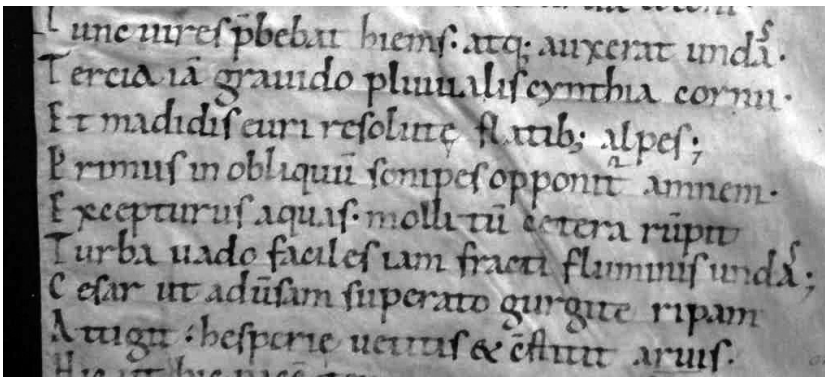 Tunc uires p̄bebat hiems· atq; auxerat undaſ·
Tercia iā grauido pluuialiſ cynthia cornu·
Et madidiſ euri reſolutę flatib; alpeſ;
Primuſ in obliquū ſonipeſ opponit̄ amnem·
Excepturuſ aquaſ· molli tū cetera rūpit
Turba uado facileſ iam fracti fluminiſ undaſ;
Ceſar ut adūſam ſuperato gurgite ripam
Attigit: heſperię uetitiſ & c̄ſtitit aruiſ·